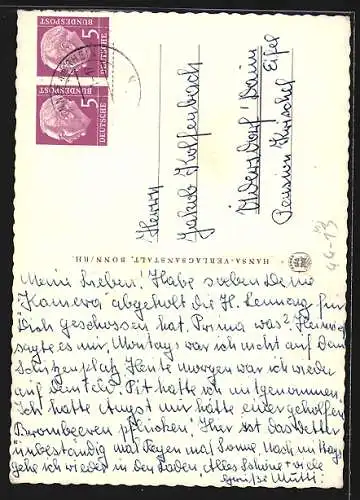 DEUTSCHE BUNDESPOST 5
DEUTSCHE BUNDESPOST 5
Herrn
Jakob Kolfenbach
Üdersdorf Daun
Pension Krischel Eifel
HANSA-VERLAGSANSTALT, BONN/RH.
44-13
Meine Lieben! Habe soeben Deine
Kamera abgeholt die H. für
Dich geschossen hat. Prima was?
sagte es mir, Montags war ich nicht auf dem
Schützenplatz. Heute morgen war ich wieder
auf dem Feld. Pit hatte ich mitgenommen.
Ich hatte Angst mir hätte einer geholfen
Brombeeren pflücken. Hier ist das Wetter
unbeständig mal Regen mal Sonne. Nach mittags
gehe ich wieder in den Laden. Alles Schöne + viele
Grüße Mutti.